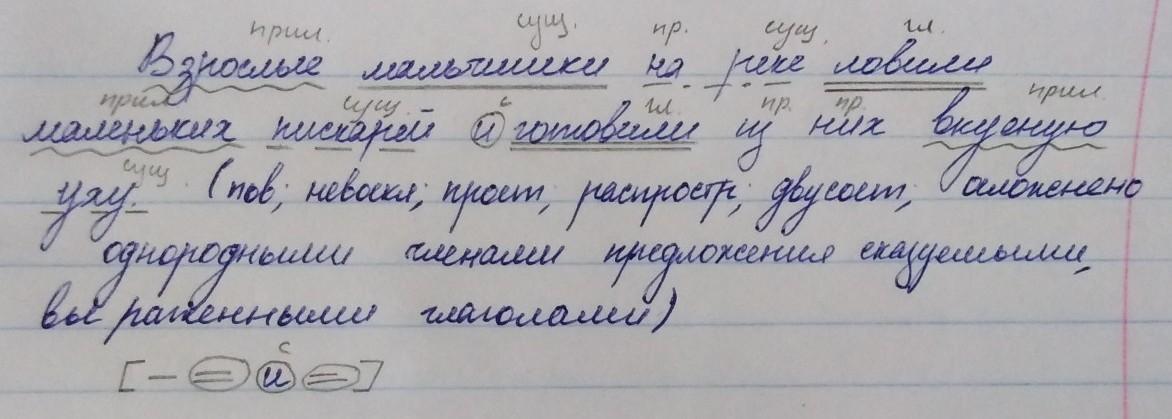 прил. сущ. пр. сущ. гл.
Взрослые мальчишки на реке ловили
прил. сущ. с гл. пр. пр. прил.
маленьких пискарей и готовили из них вкусную
сущ.
уху. (пов; невоскл; прост; распростр; двусост; осложнено
однородными членами предложения сказуемыми,
выраженными глаголами)
с
[– = и =]